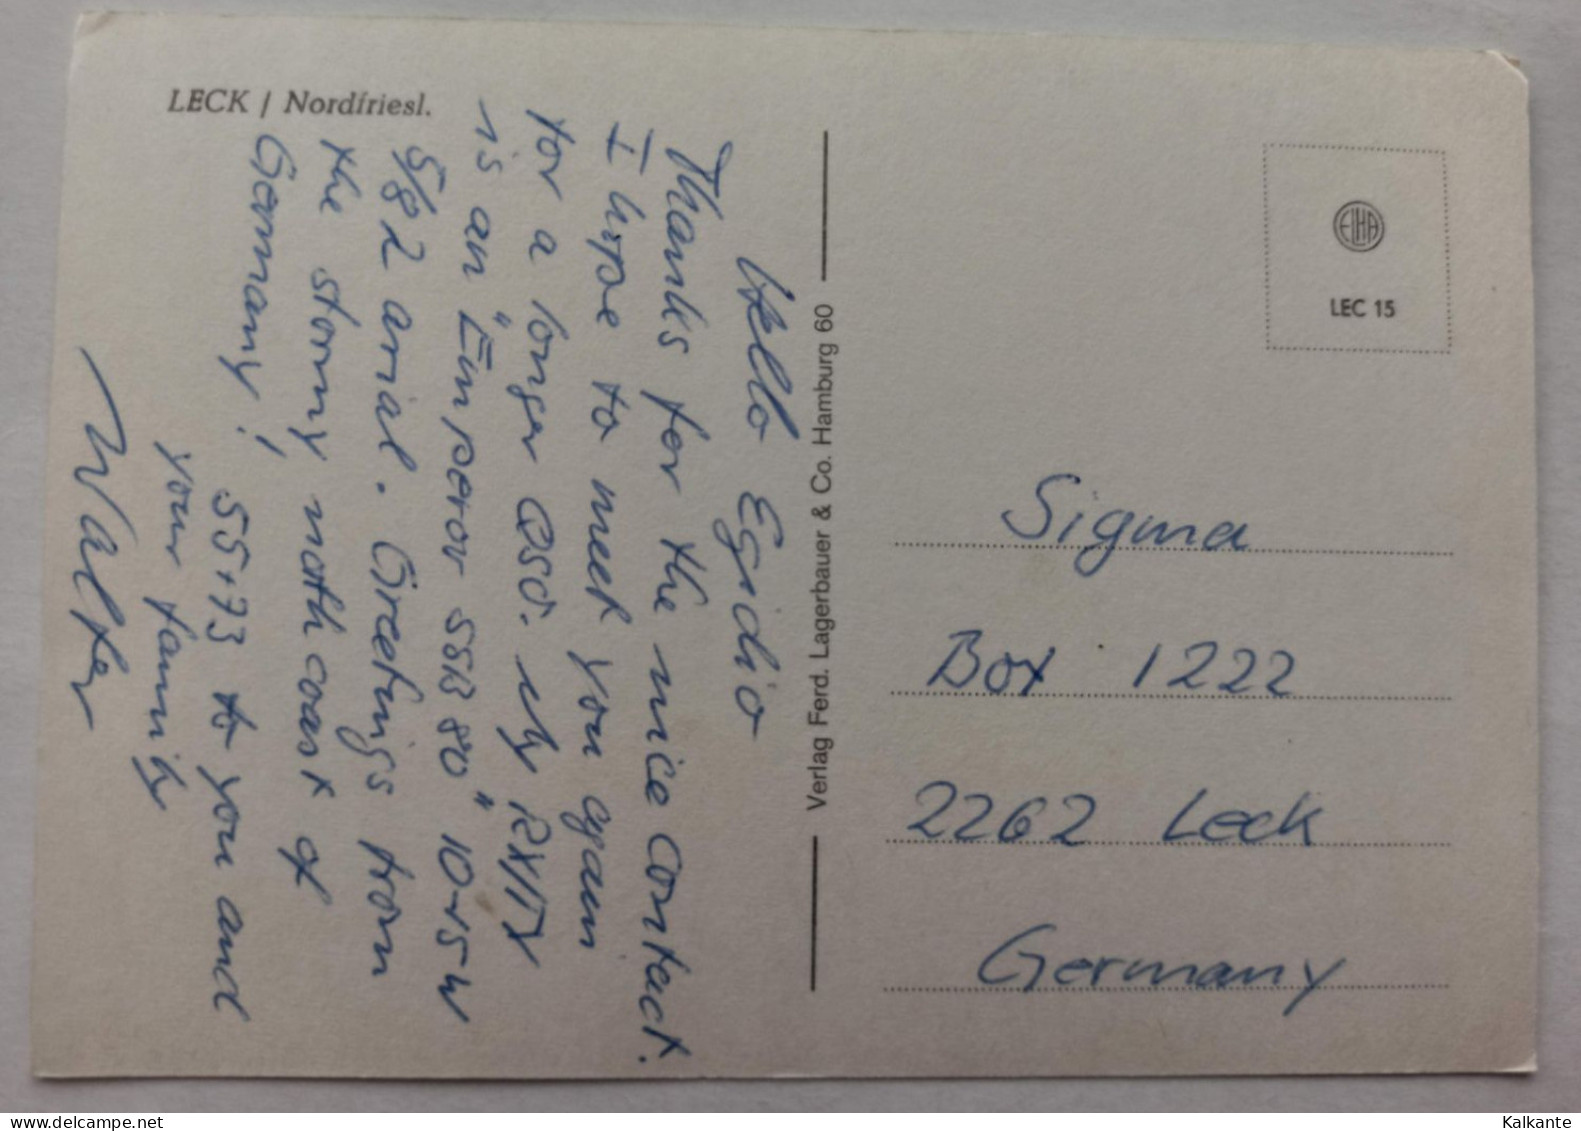 LECK / Nordfriesl.
Hello Egidio
Thanks for the nice contact.
I hope to meet you again
for a longer QSO. My RX/TX
is an "Emperor SSB 80" 10-15W
5/8 λ arial. Greetings from
the stormy noth coast of
Germany!
55+73 to you and
your family
Walter
Verlag Ferd. Lagerbauer & Co. Hamburg 60
EIHA
LEC 15
Sigma
Box 1222
2262 Leck
Germany
Delcampe.net
Kalkante